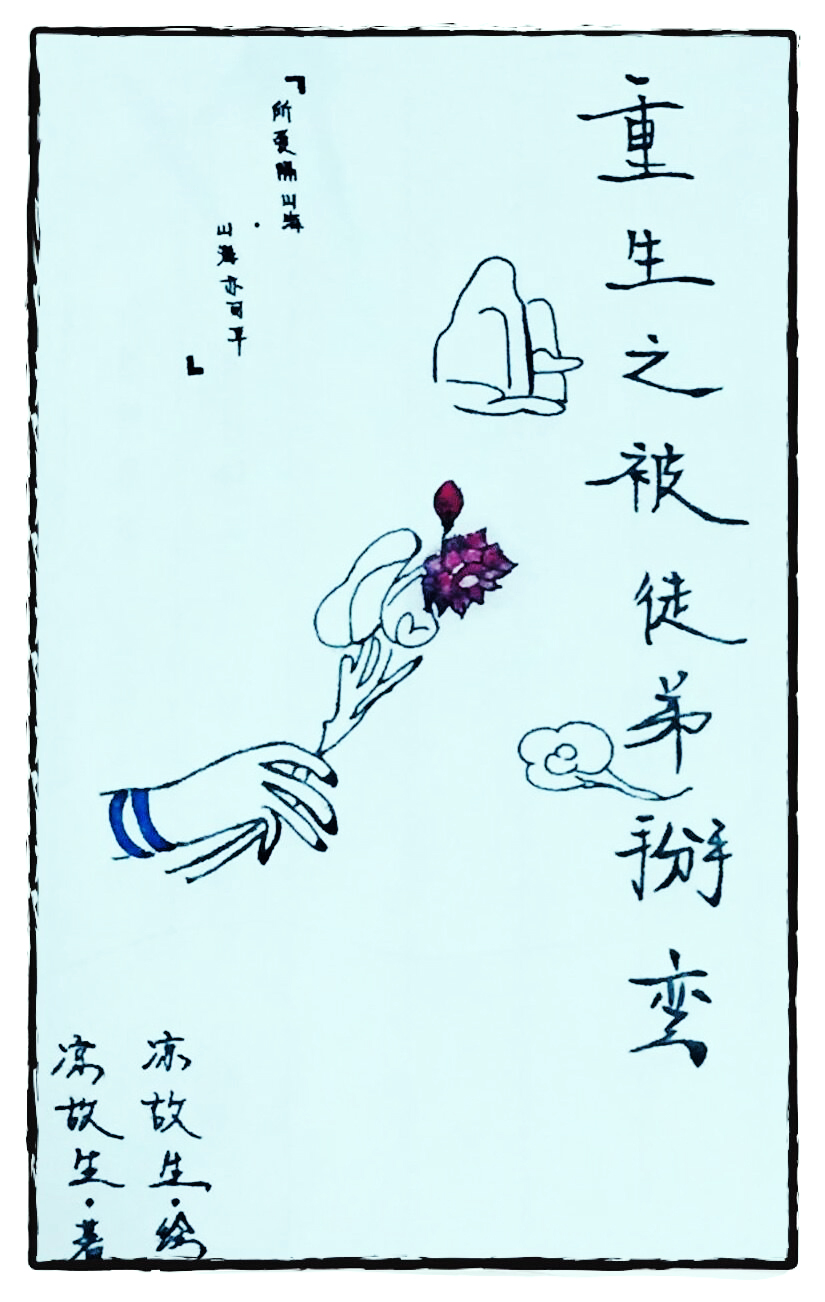 重生之被徒弟掰弯
「所爱隔山海·
山海亦可平」
凉故生·绘
凉故生·著